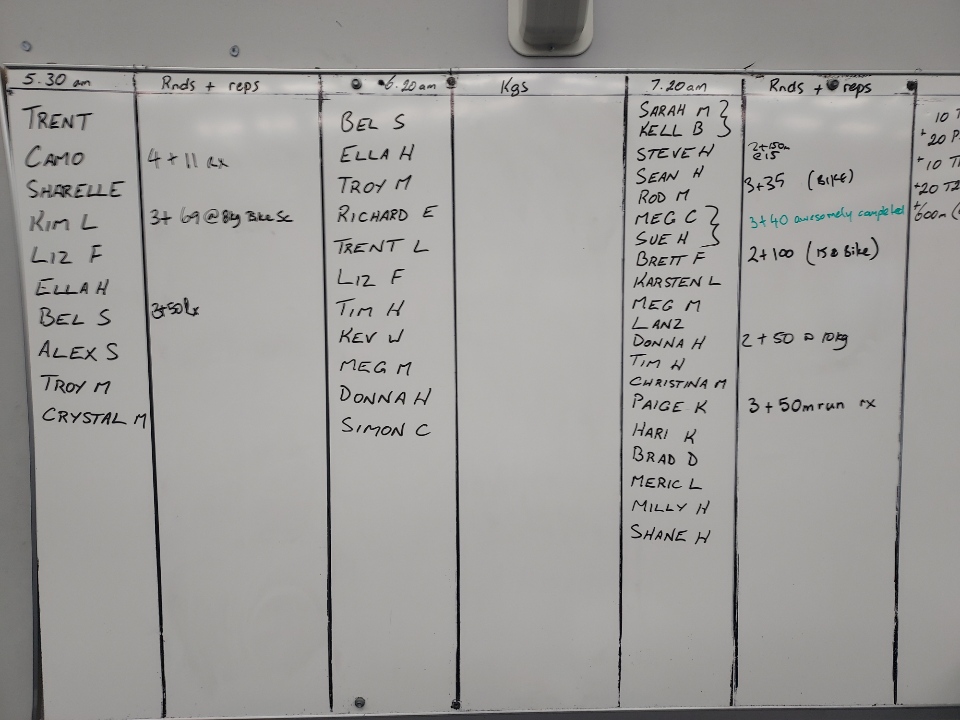 5.30 am
Rnds + reps
TRENT
CAMO 4 + 11 Rx
SHARELLE
KIM L 3+ 69 @ 8kg Bike Sc
LIZ F
ELLA H
BEL S 3+50 Rx
ALEX S
TROY M
CRYSTAL M
6.20am
Kgs
BEL S
ELLA H
TROY M
RICHARD E
TRENT L
LIZ F
TIM H
KEV W
MEG M
DONNA H
SIMON C
7.20am
Rnds + reps
SARAH M
KELL B
STEVE H 2+150m
@15
SEAN H 3+35 (BIKE)
ROD M
MEG C 3+40 awesomely completed
SUE H
BRETT F 2+100 (15 & Bike)
KARSTEN L
MEG M
LANZ
DONNA H 2 + 50 @ 10kg
TIM H
CHRISTINA M
PAIGE K 3 + 50m run rx
HARI K
BRAD D
MERIC L
MILLY H
SHANE H
10 T
+20 P
+10 T
+20 T2
+600m